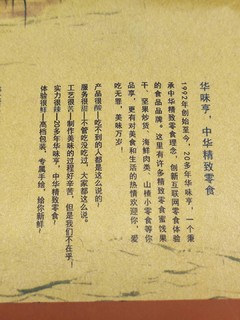 华味亨，中华精致零食
1992年创始至今，20多年华味亨，一个秉
承中华精致零食理念，创新互联网零食体验
的食品品牌。这里有许多精致零食蜜饯果
干、坚果炒货、海鲜肉类、山楂小零食等你
品享，更有对美食和生活的热情欢迎你，爱
吃无罪，美味万岁！
产品很酸—吃不到的人都是这么说的！
服务很甜—不管吃没吃过，大家都这么说。
工艺很苦—制作美味的过程好辛苦，但是我们不在乎。
实力很辣—20多年华味亨，中华精致零食！
体验很鲜—高档包装，专属手绘，给你新鲜！